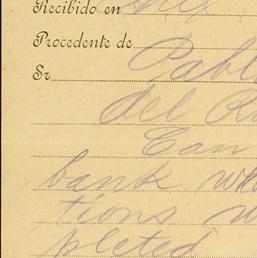 Recibido en
Procedente de
Sr. Pabl
del R
Can
bank wh
tions w
pleted